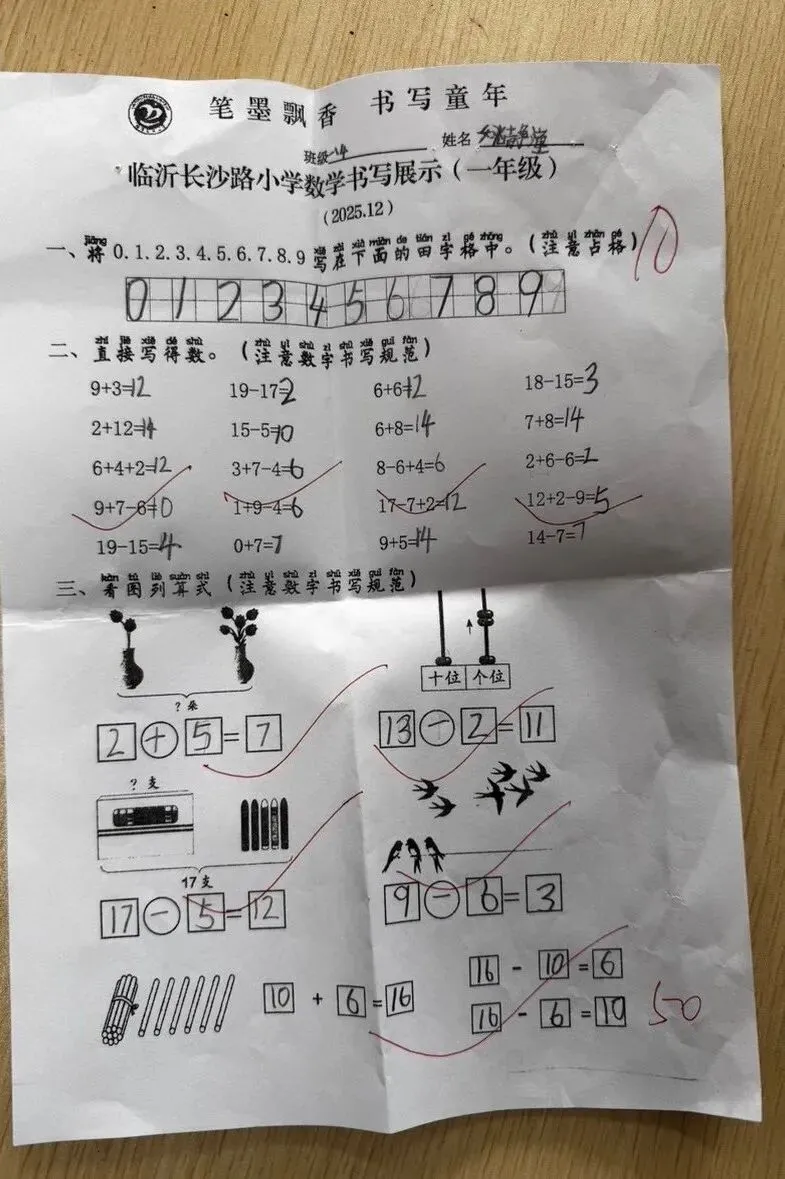 笔墨飘香 书写童年
班级 姓名
临沂长沙路小学数学书写展示(一年级)
(2025.12)
jiāng xiě zài xià miàn de tián zì gé zhōng zhù yì zhàn gé
一、将 0.1.2.3.4.5.6.7.8.9 写在下面的田字格中。(注意占格)
10
0 1 2 3 4 5 6 7 8 9
zhí jiē xiě dé shù zhù yì shù zì shū xiě guī fàn
二、直接写得数。(注意数字书写规范)
9+3=12 19-17=2 6+6=12 18-15=3
2+12=14 15-5=10 6+8=14 7+8=14
6+4+2=12 3+7-4=6 8-6+4=6 2+6-6=2
9+7-6=10 1+9-4=6 17-7+2=12 12+2-9=5
19-15=4 0+7=7 9+5=14 14-7=7
kàn tú liè suàn shì zhù yì shù zì shū xiě guī fàn
三、看图列算式(注意数字书写规范)
十位 个位
?朵
2+5=7 13-2=11
?支
17支
17-5=12 9-6=3
10+6=16 16-10=6
16-6=10 50